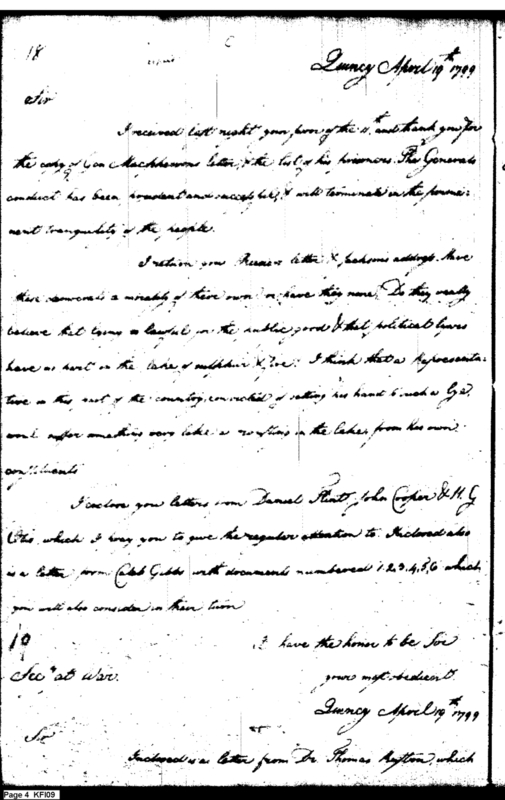 18
Quincy April 19th 1799
Sir
I received last night your favor of the 11th and thank you for
the copy of Gen Macphersons letter, & the list of his prisoners. The Generals
conduct has been prudent and successful, & will terminate in the perma-
nent tranquility of the people.
I return you letter & Jacksons address. Have
these a morality of their own or have they none. Do they really
believe that lying is lawful for the public good & that political lyars
have no part in the lake of sulphur & fire. I think that a Representa-
tive in this part of the country, convicted of setting his hand to such a lye,
would suffer something very like a in the lake, from his own
constituents
I enclose you letters from Daniel John Cooper & H G
Otis, which I pray you to give the regular attention to. Inclosed also
is a letter from Caleb Gibbs with documents numbered 1.2.3.4.5.6 which
you will also consider in their turn
19
I have the honor to be Sir
Secy at War.
your most obedient
Quincy April 19th 1799
Sir
Inclosed is a letter from Dr. Thomas which
Page 4 KFI09